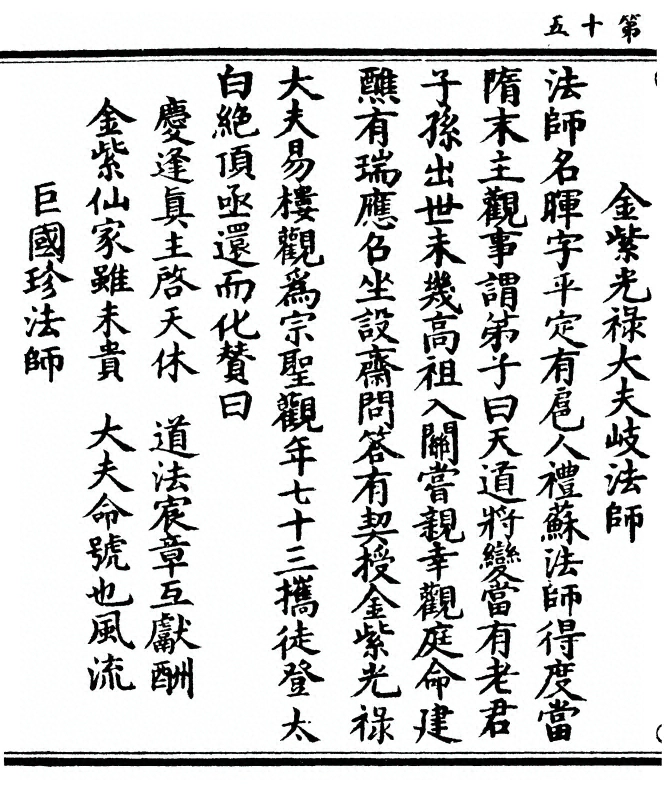 第十五
金紫光祿大夫岐法師
法師名暉字平定有扈人禮蘇法師得度當
隋末主觀事謂弟子曰天道將變當有老君
子孫出世未幾高祖入關嘗親幸觀庭命建
醮有瑞應召坐設齋問答有契授金紫光祿
大夫易樓觀爲宗聖觀年七十三攜徒登太
白絶頂亟還而化贊曰
慶逢眞主啓天休　道法宸章互獻酬
金紫仙家雖未貴　大夫命號也風流
巨國珍法師